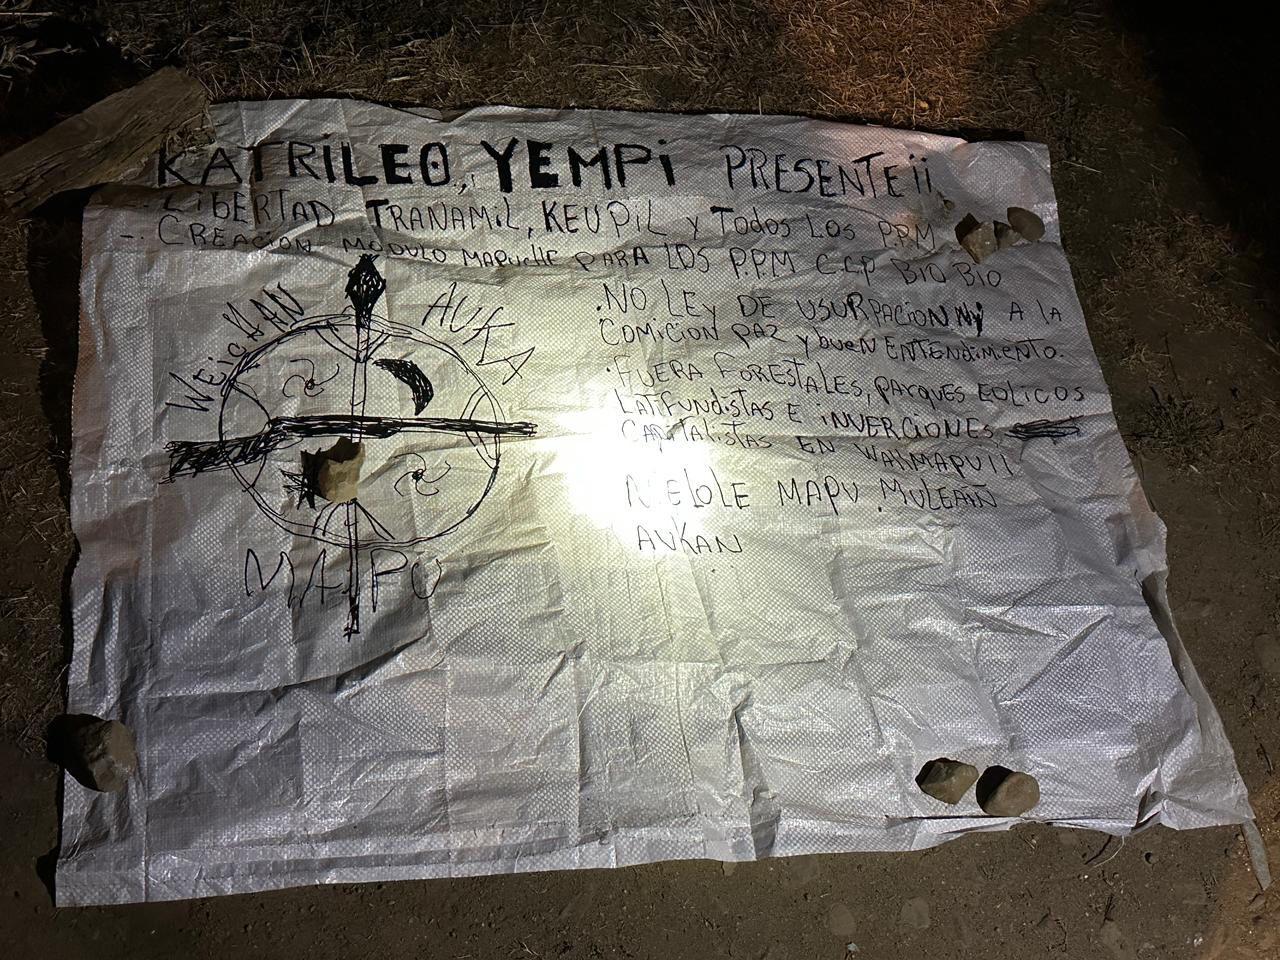 KATRILEO,, YEMPI PRESENTE¡¡
-. LIBERTAD TRANAMIL, KEUPIL y TODOS LOS P.P.M
-. CREACION MODULO MAPUCHE PARA LOS P.P.M C.C.P BIO BIO
.NO LEY DE USURPACION Ni A la
COMICION PAZ y buEN ENTENdimiENTO.
.FUERA FORESTALES, PARQUES EOLICOS
LATIFUNDISTAS E INVERCIONES
CAPITALISTAS EN WAllMAPU¡¡
NIELOLE MAPU MULEAIÑ
AUKAN
WEICHAN
AUKA
MAIPO